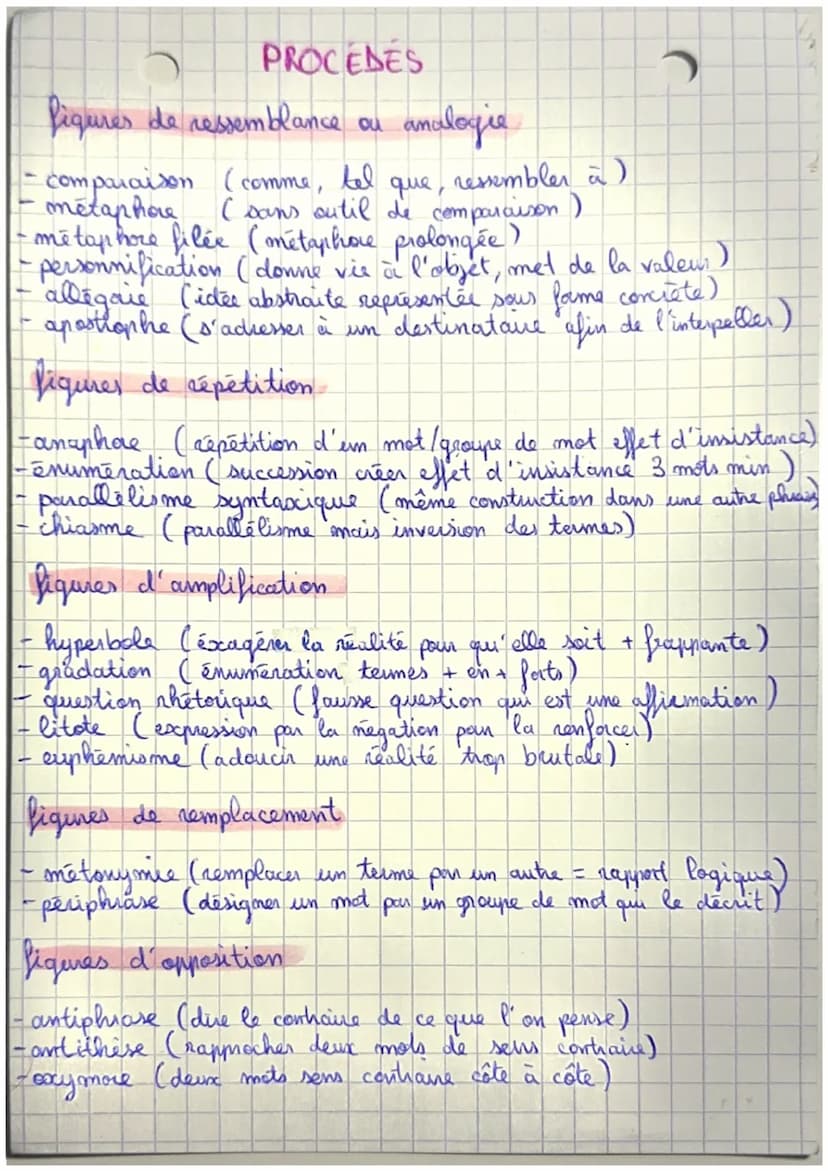 PROCÉDÉS
figures de ressemblance ou analogie
- comparaison (comme, tel que, ressembler à)
- métaphore (sans outil de comparaison)
- métaphore filée (métaphore prolongée)
- personnification (donne vie à l'objet, met de la valeur)
- allégorie (idée abstraite représentée sous forme concrète)
- apostrophe (s'adresser à un destinataire afin de l'interpeller)
figures de répétition
- anaphore (répétition d'un mot/groupe de mot effet d'insistance)
- énumération (succession créer effet d'insistance 3 mots min)
- parallélisme syntaxique (même construction dans une autre phrase)
- chiasme (parallélisme mais inversion des termes)
figures d'amplification
- hyperbole (éxagérer la réalité pour qu'elle soit + frappante)
- gradation (énumération termes + en + forts)
- question rhétorique (fausse question qui est une affirmation)
- litote (expression par la négation pour la renforcer)
- euphémisme (adoucir une réalité trop brutale)
figures de remplacement
- métonymie (remplacer un terme par un autre = rapport logique)
- périphrase (désigner un mot par un groupe de mot qui le décrit)
figures d'opposition
- antiphrase (dire le contraire de ce que l'on pense)
- antithèse (rapprocher deux mots de sens contraire)
- oxymore (deux mots sens contraire côte à côte)